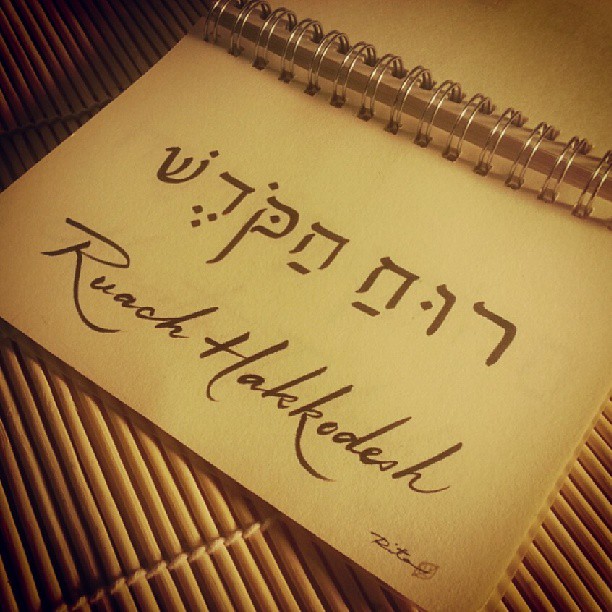 רוּחַ הַקֹּדֶשׁ
Ruach Hakkodesh
Rita